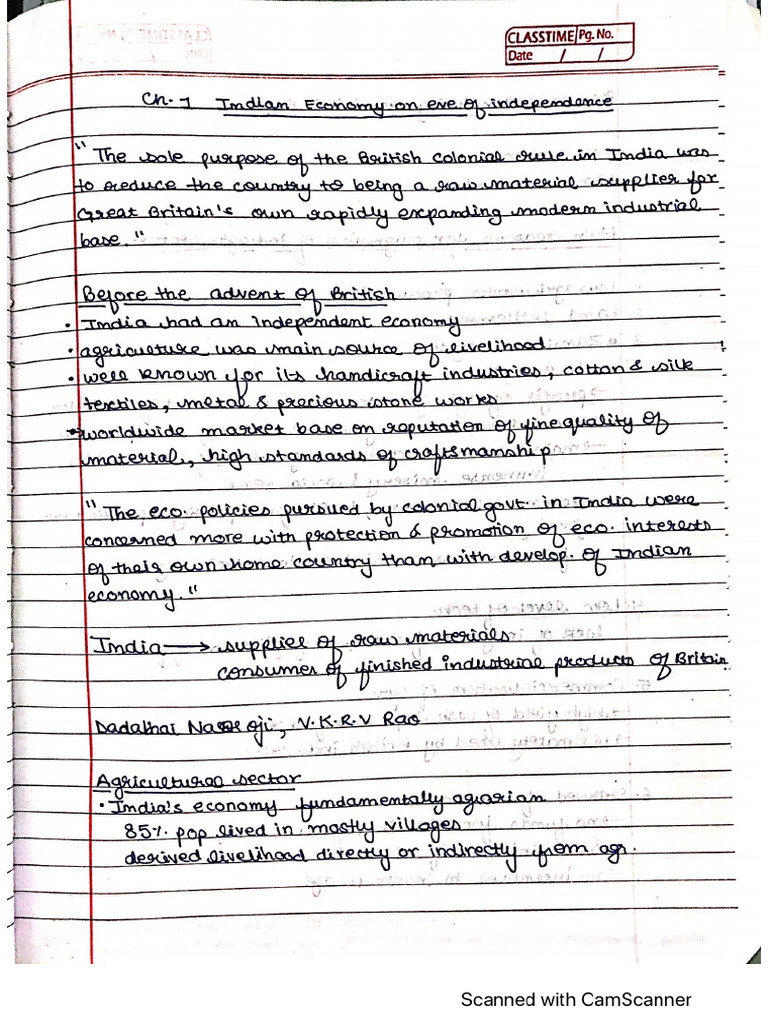 CLASSTIME Pg. No.
Date / /
Ch. 1 Indian Economy on eve of independence
"The sole purpose of the British colonial rule in India was
to reduce the country to being a raw material supplier for
Great Britain's own rapidly expanding modern industrial
base."
Before the advent of British
• India had an independent economy
• agriculture was main source of livelihood
• well known for its handicraft industries, cotton & silk
textiles, metal & precious stone works
→ worldwide market base on reputation of fine quality of
material, high standards of craftsmanship
"The eco. policies pursued by colonial govt. in India were
concerned more with protection & promotion of eco. interests
of their own home country than with develop. of Indian
economy."
India → supplier of raw materials
consumer of finished industrial products of Britain
Dadabhai Naoroji, V.K.R.V Rao
Agricultural sector
• India's economy fundamentally agrarian
85% pop lived in mostly villages
derived livelihood directly or indirectly from agr.
Scanned with CamScanner